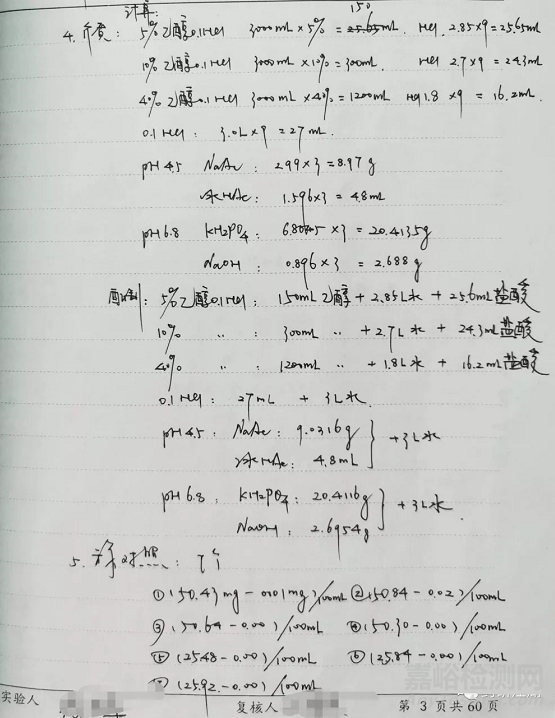 计算:
150
4. 介质: 5%乙醇0.1HCl 3000mL×5%=25.65mL. HCl 2.85×9=25.65ml
10%乙醇0.1HCl 3000mL×10%=300mL. HCl 2.7×9=24.3mL
40%乙醇0.1HCl 3000mL×40%=1200mL HCl 1.8×9=16.2mL
0.1HCl: 3.0L×9=27mL.
pH4.5 NaAc: 2.99×3=8.97g
冰HAc: 1.596×3=4.8mL
pH6.8 KH2PO4: 6.8045×3=20.4135g
NaOH: 0.896×3=2.688g
配制: 5%乙醇0.1HCl: 150mL乙醇+2.85L水+25.6mL盐酸
10% 〃: 300mL 〃+2.7L水+24.3mL盐酸
40% 〃: 1200mL 〃+1.8L水+16.2mL盐酸
0.1HCl: 27mL+3L水.
pH4.5: NaAc: 9.0316g
冰HAc: 4.8mL } +3L水
pH6.8: KH2PO4: 20.4116g
NaOH: 2.6954g } +3L水.
5. 对照: 7个
①(50.43mg-0.01mg)/100mL ②(50.84-0.02)/100mL
③(50.64-0.00)/100mL ④(50.30-0.00)/100mL
⑤(25.48-0.00)/100mL ⑥(25.84-0.00)/100mL
⑦(25.92-0.00)/100mL
嘉峪检测网
实验人 复核人 第 3 页共60页